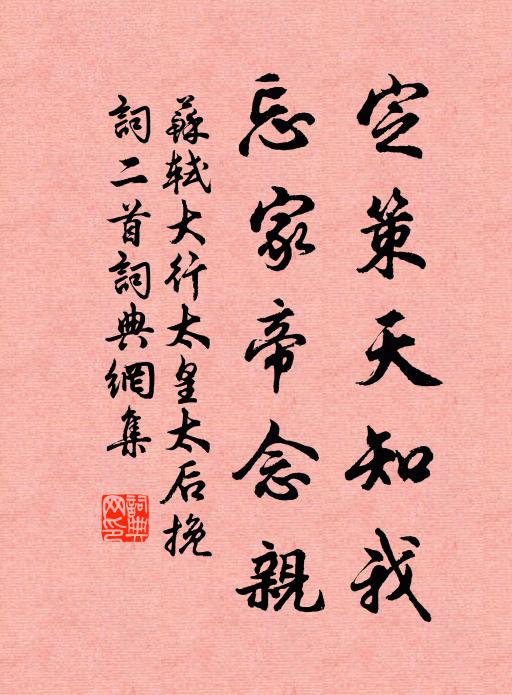 定策天知我
忘家帝念親
蘇軾大行太皇太后挽
詞二首詞典網集
詞典
网印